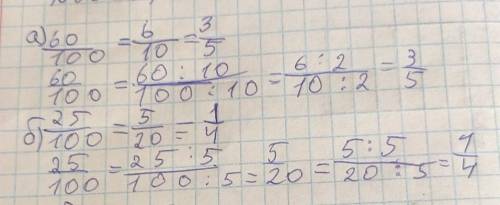 а) 60/100 = 6/10 = 3/5
60/100 = 60 : 10/100 : 10 = 6 : 2/10 : 2 = 3/5
б) 25/100 = 5/20 = 1/4
25/100 = 25 : 5/100 : 5 = 5/20 = 5 : 5/20 : 5 = 1/4